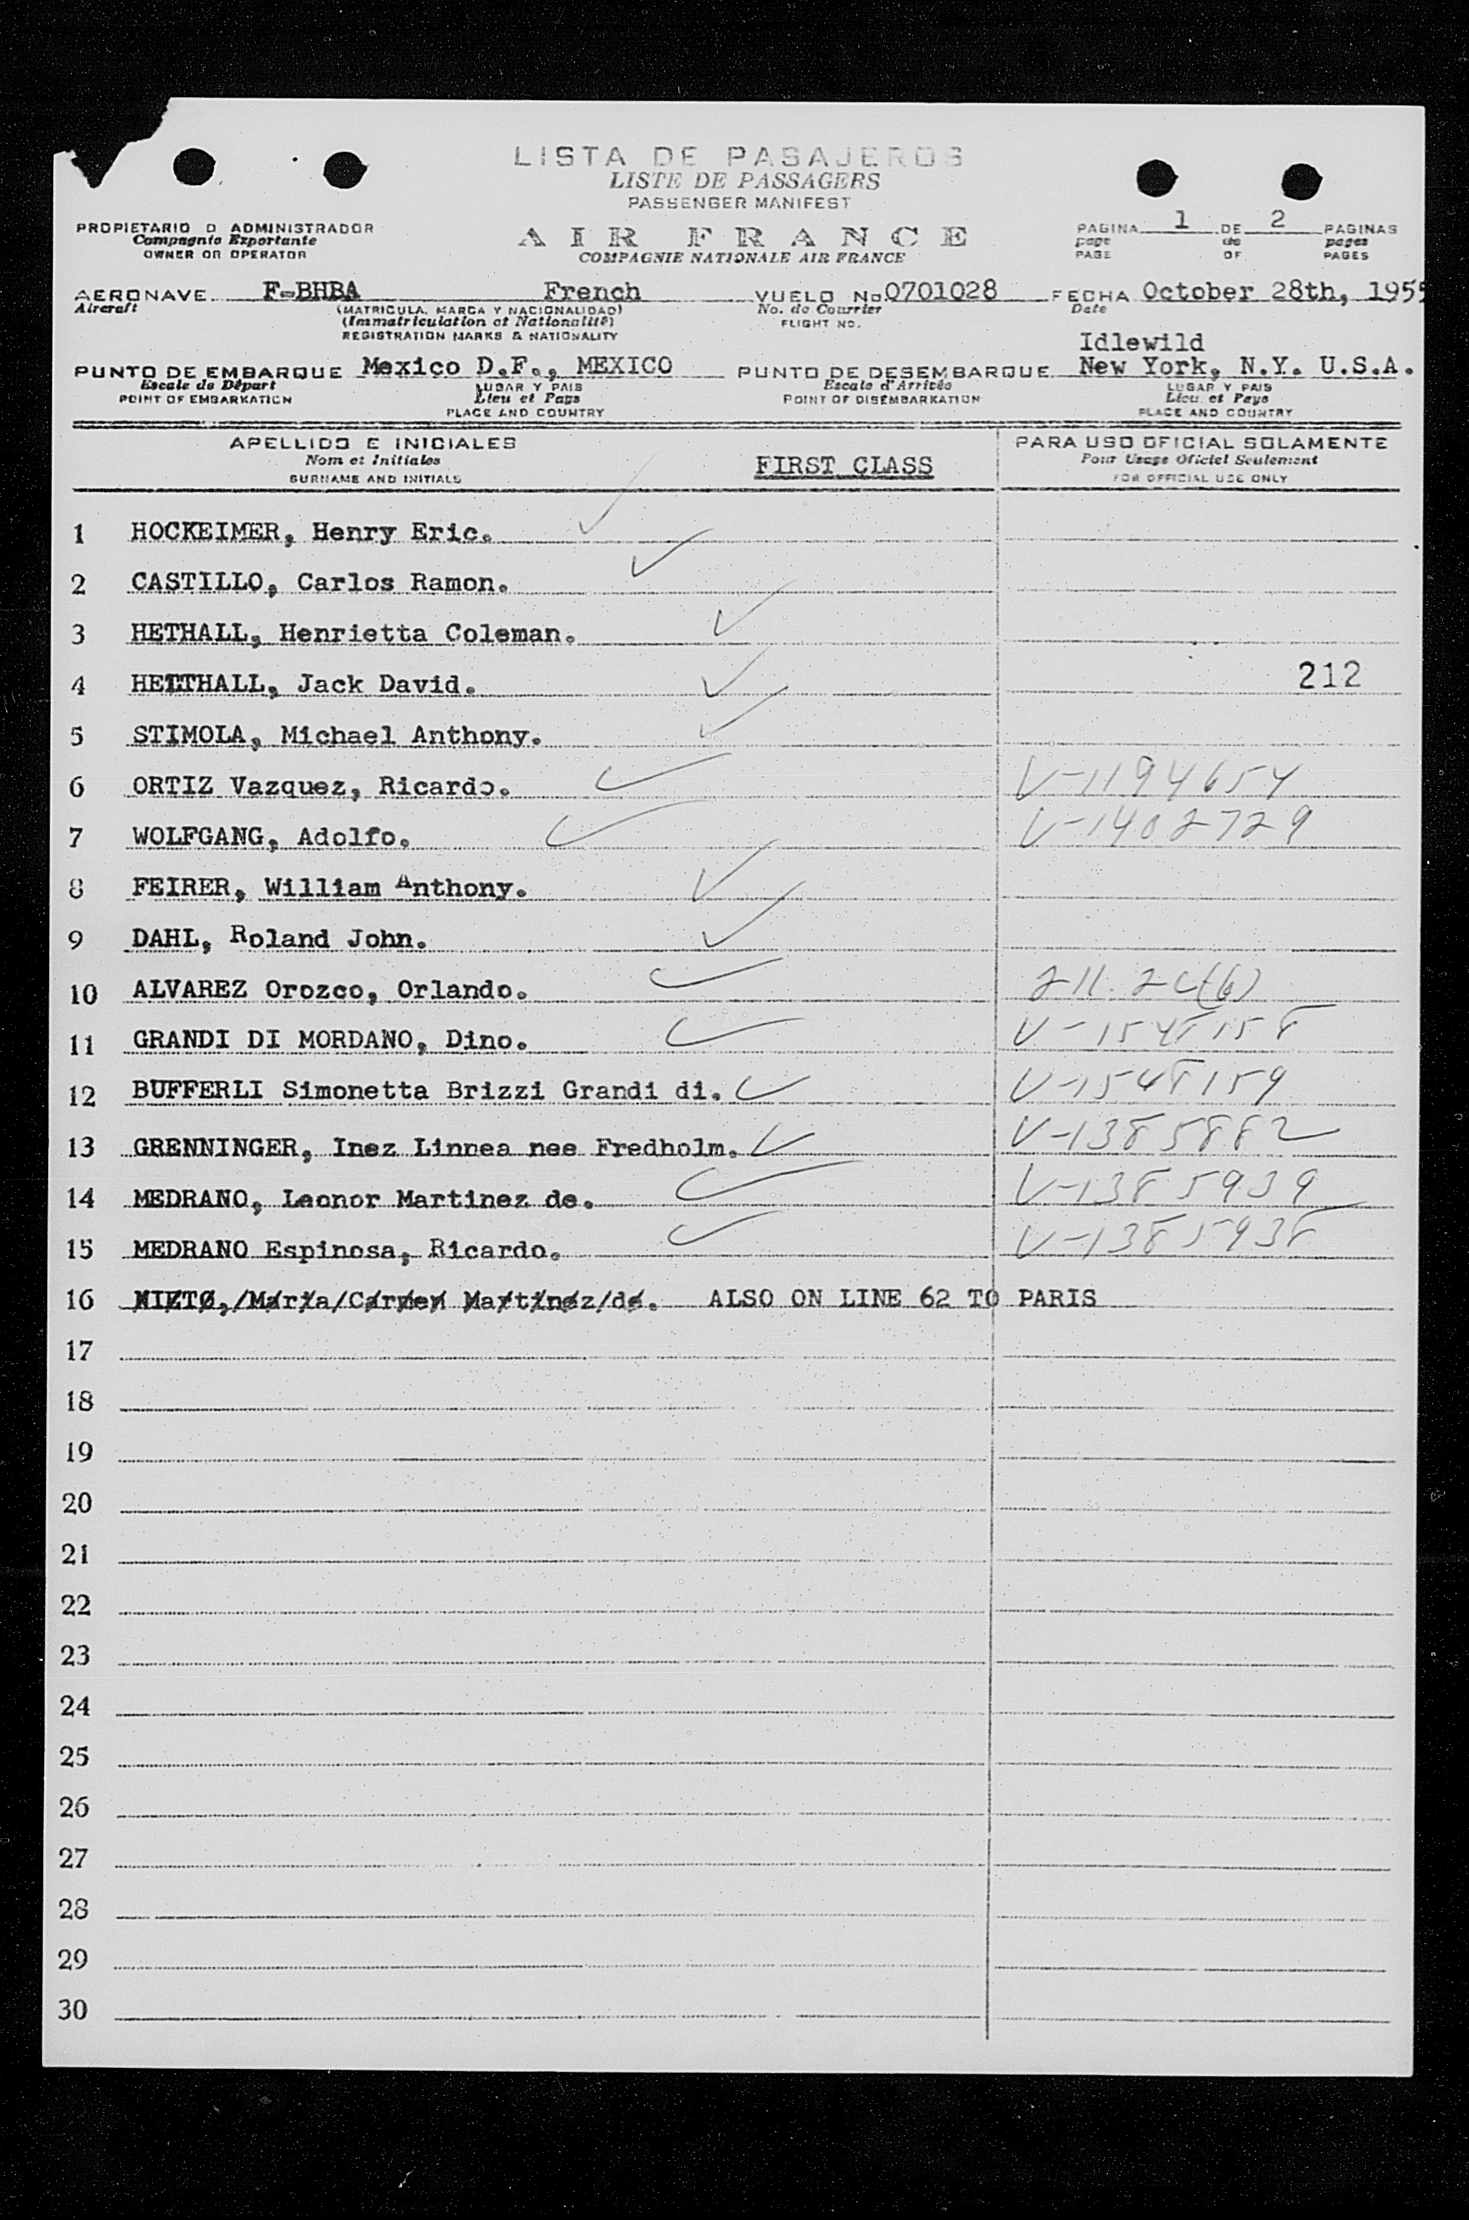 LISTA DE PASAJEROS
LISTE DE PASSAGERS
PASSENGER MANIFEST
PROPIETARIO O ADMINISTRADOR
Compagnie Exportante
OWNER OR OPERATOR
AIR FRANCE
COMPAGNIE NATIONALE AIR FRANCE
PAGINA 1 DE 2 PAGINAS
page de pages
PAGE OF PAGES
AERONAVE F-BHBA French VUELO No 0701028 FECHA October 28th, 1955
Aircraft (MATRICULA, MARCA Y NACIONALIDAD) No. de Courrier Date
(Immatriculation et Nationalité) FLIGHT NO.
REGISTRATION MARKS & NATIONALITY
Idlewild
PUNTO DE EMBARQUE Mexico D.F., MEXICO PUNTO DE DESEMBARQUE New York, N.Y. U.S.A.
Escale de Départ LUGAR Y PAIS Escale d'Arrivée LUGAR Y PAIS
POINT OF EMBARKATION Lieu et Pays POINT OF DISEMBARKATION Lieu et Pays
PLACE AND COUNTRY PLACE AND COUNTRY
APELLIDO E INICIALES PARA USO OFICIAL SOLAMENTE
Nom et Initiales FIRST CLASS Pour Usage Oficiel Seulement
SURNAME AND INITIALS FOR OFFICIAL USE ONLY
1 HOCKEIMER, Henry Eric.
2 CASTILLO, Carlos Ramon.
3 HETHALL, Henrietta Coleman.
4 HETTHALL, Jack David. 212
5 STIMOLA, Michael Anthony.
6 ORTIZ Vazquez, Ricardo. V-1194654
7 WOLFGANG, Adolfo. V-1402729
8 FEIRER, William Anthony.
9 DAHL, Roland John.
10 ALVAREZ Orozco, Orlando. 211.2c(6)
11 GRANDI DI MORDANO, Dino. V-1548158
12 BUFFERLI Simonetta Brizzi Grandi di. V-1548159
13 GRENNINGER, Inez Linnea nee Fredholm. V-1385882
14 MEDRANO, Leonor Martinez de. V-1385939
15 MEDRANO Espinosa, Ricardo. V-1385938
16 NIETO,/Maria/Carmen Martinez/de. ALSO ON LINE 62 TO PARIS
17
18
19
20
21
22
23
24
25
26
27
28
29
30